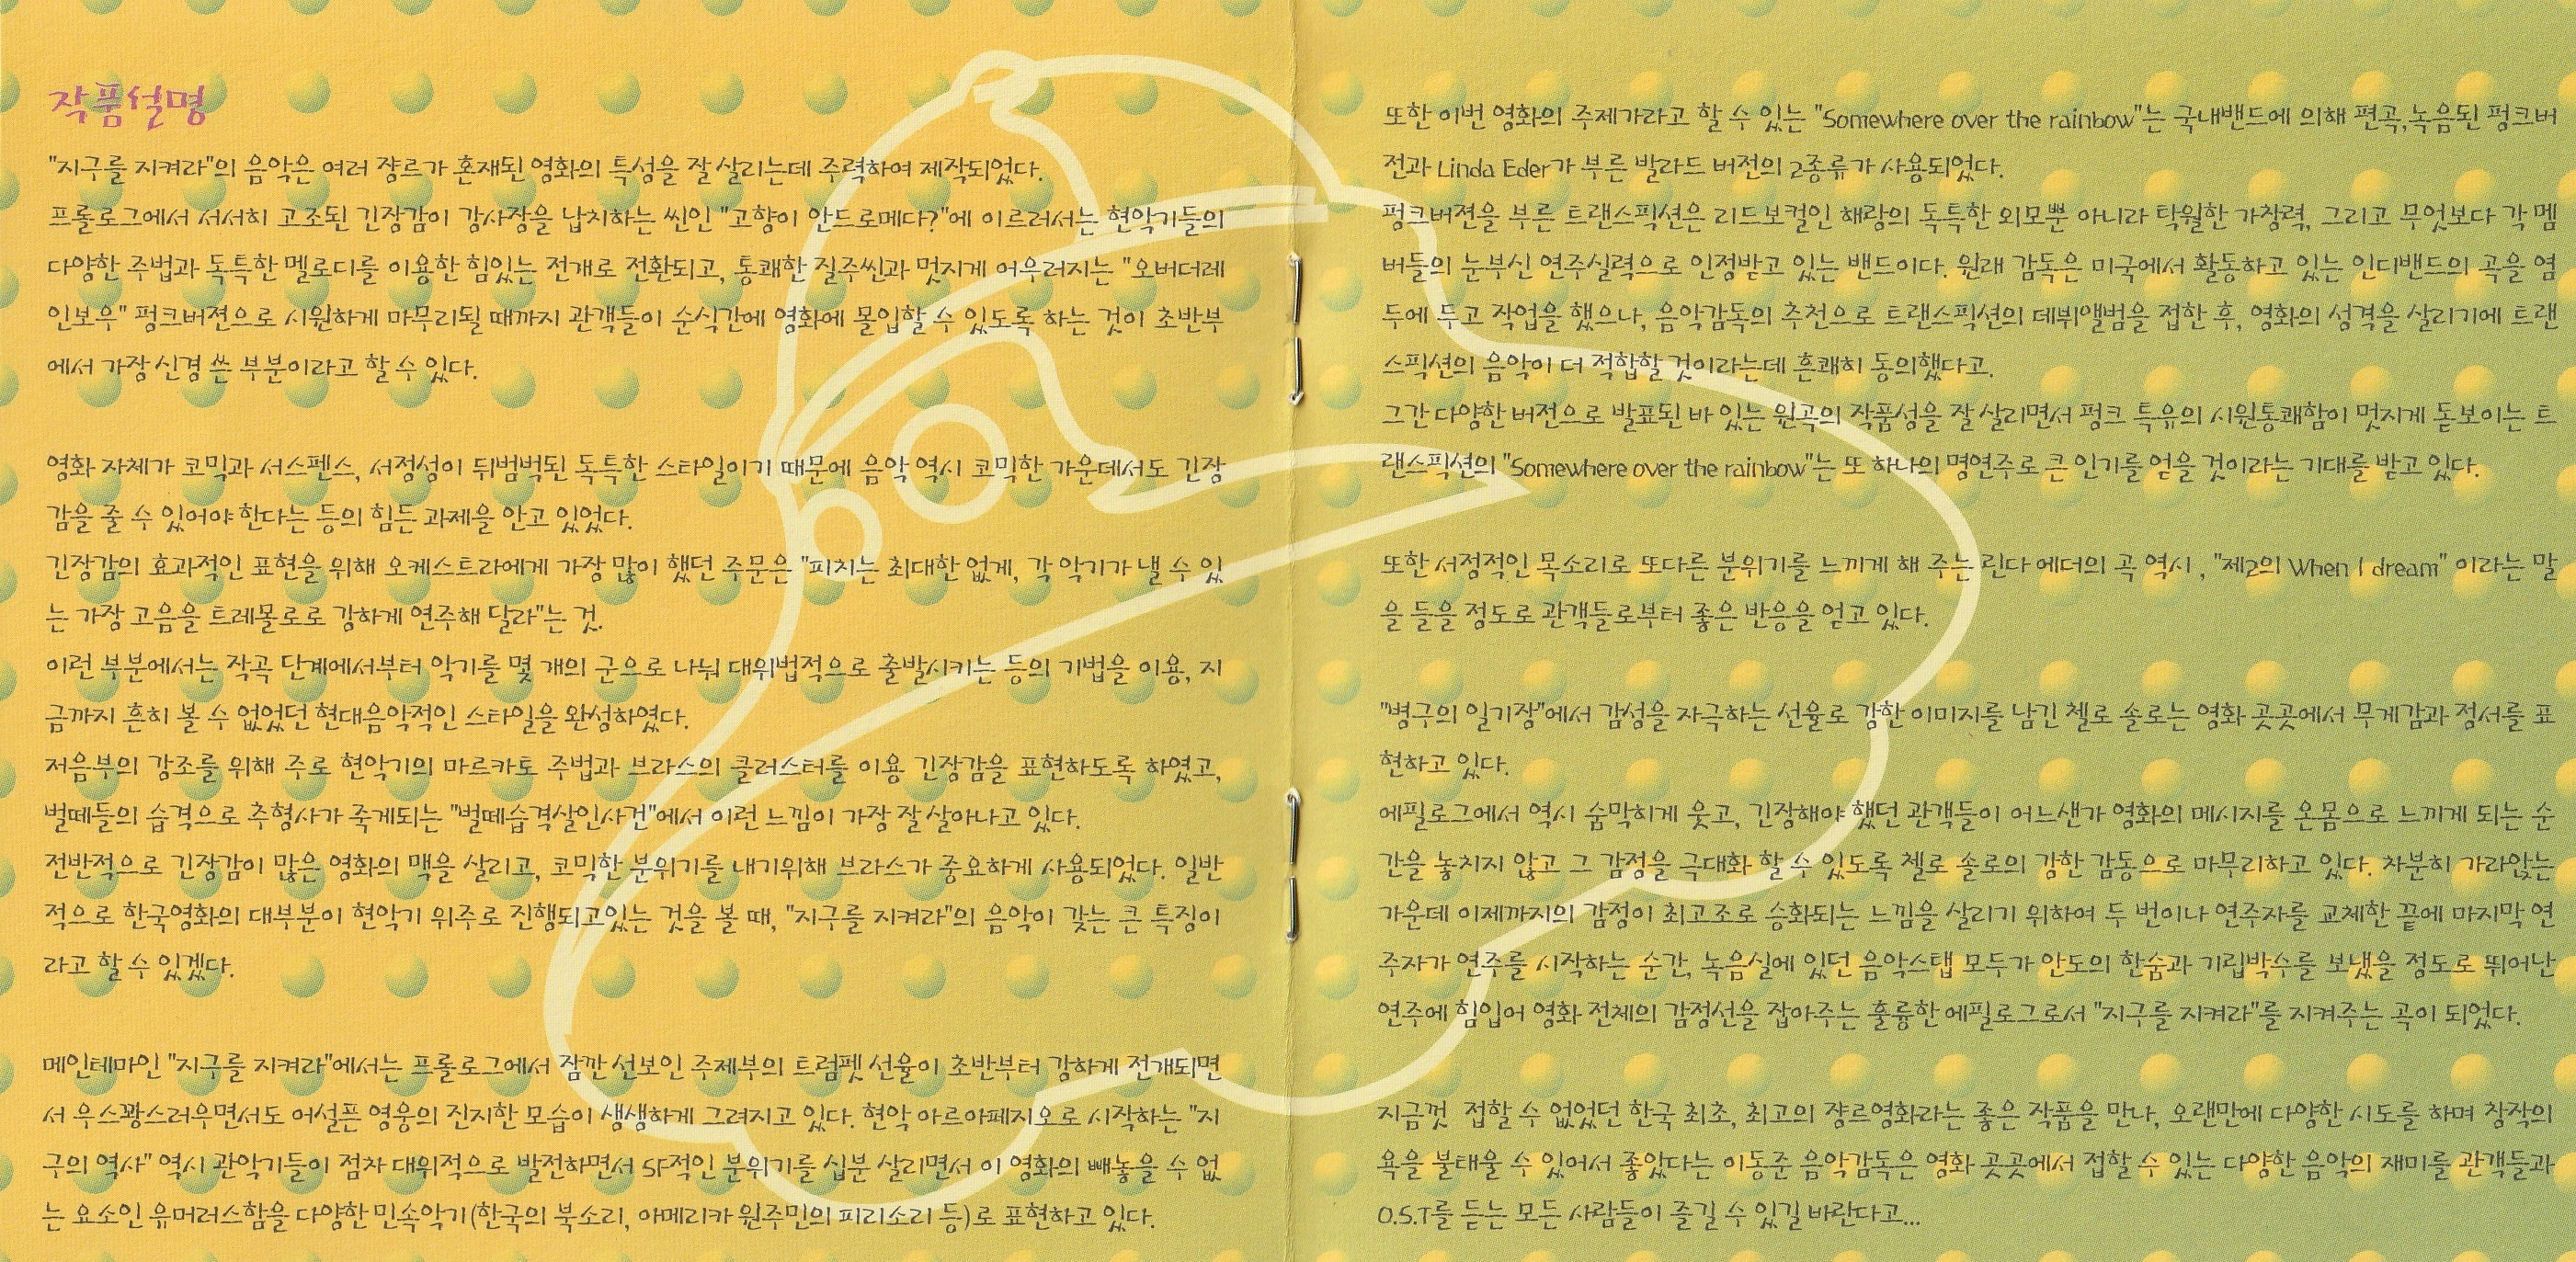 작품설명
"지구를 지켜라"의 음악은 여러 쟝르가 혼재된 영화의 특성을 잘 살리는데 주력하여 제작되었다.
프롤로그에서 서서히 고조된 긴장감이 강사장을 납치하는 씬인 "고향이 안드로메다?"에 이르러서는 현악기들의
다양한 주법과 독특한 멜로디를 이용한 힘있는 전개로 전환되고, 통쾌한 질주씬과 멋지게 어우러지는 "오버더레
인보우" 펑크버젼으로 시원하게 마무리될 때까지 관객들이 순식간에 영화에 몰입할 수 있도록 하는 것이 초반부
에서 가장 신경 쓴 부분이라고 할 수 있다.
영화 자체가 코믹과 서스펜스, 서정성이 뒤범벅된 독특한 스타일이기 때문에 음악 역시 코믹한 가운데서도 긴장
감을 줄 수 있어야 한다는 등의 힘든 과제을 안고 있었다.
긴장감의 효과적인 표현을 위해 오케스트라에게 가장 많이 했던 주문은 "피치는 최대한 없게, 각 악기가 낼 수 있
는 가장 고음을 트레몰로로 강하게 연주해 달라"는 것.
이런 부분에서는 작곡 단계에서부터 악기를 몇 개의 군으로 나눠 대위법적으로 출발시키는 등의 기법을 이용, 지
금까지 흔히 볼 수 없었던 현대음악적인 스타일을 완성하였다.
저음부의 강조를 위해 주로 현악기의 마르카토 주법과 브라스의 클러스터를 이용 긴장감을 표현하도록 하였고,
벌떼들의 습격으로 추형사가 죽게되는 "벌떼습격살인사건"에서 이런 느낌이 가장 잘 살아나고 있다.
전반적으로 긴장감이 많은 영화의 맥을 살리고, 코믹한 분위기를 내기위해 브라스가 중요하게 사용되었다. 일반
적으로 한국영화의 대부분이 현악기 위주로 진행되고있는 것을 볼 때, "지구를 지켜라"의 음악이 갖는 큰 특징이
라고 할 수 있겠다.
메인테마인 "지구를 지켜라"에서는 프롤로그에서 잠깐 선보인 주제부의 트럼펫 선율이 초반부터 강하게 전개되면
서 우스꽝스러우면서도 어설픈 영웅의 진지한 모습이 생생하게 그려지고 있다. 현악 아르아페지오로 시작하는 "지
구의 역사" 역시 관악기들이 점차 대위적으로 발전하면서 SF적인 분위기를 십분 살리면서 이 영화의 빼놓을 수 없
는 요소인 유머러스함을 다양한 민속악기(한국의 북소리, 아메리카 원주민의 피리소리 등)로 표현하고 있다.
또한 이번 영화의 주제가라고 할 수 있는 "Somewhere over the rainbow"는 국내밴드에 의해 편곡,녹음된 펑크버
전과 Linda Eder가 부른 발라드 버전의 2종류가 사용되었다.
펑크버젼을 부른 트랜스픽션은 리드보컬인 해랑의 독특한 외모뿐 아니라 탁월한 가창력, 그리고 무엇보다 각 멤
버들의 눈부신 연주실력으로 인정받고 있는 밴드이다. 원래 감독은 미국에서 활동하고 있는 인디밴드의 곡을 염
두에 두고 작업을 했으나, 음악감독의 추천으로 트랜스픽션의 데뷔앨범을 접한 후, 영화의 성격을 살리기에 트랜
스픽션의 음악이 더 적합할 것이라는데 흔쾌히 동의했다고.
그간 다양한 버전으로 발표된 바 있는 원곡의 작품성을 잘 살리면서 펑크 특유의 시원통쾌함이 멋지게 돋보이는 트
랜스픽션의 "Somewhere over the rainbow"는 또 하나의 명연주로 큰 인기를 얻을 것이라는 기대를 받고 있다.
또한 서정적인 목소리로 또다른 분위기를 느끼게 해 주는 린다 에더의 곡 역시 , "제2의 When I dream" 이라는 말
을 들을 정도로 관객들로부터 좋은 반응을 얻고 있다.
"병구의 일기장"에서 감성을 자극하는 선율로 강한 이미지를 남긴 첼로 솔로는 영화 곳곳에서 무게감과 정서를 표
현하고 있다.
에필로그에서 역시 숨막히게 웃고, 긴장해야 했던 관객들이 어느샌가 영화의 메시지를 온몸으로 느끼게 되는 순
간을 놓치지 않고 그 감정을 극대화 할 수 있도록 첼로 솔로의 강한 감동으로 마무리하고 있다. 차분히 가라앉는
가운데 이제까지의 감정이 최고조로 승화되는 느낌을 살리기 위하여 두 번이나 연주자를 교체한 끝에 마지막 연
주자가 연주를 시작하는 순간, 녹음실에 있던 음악스탭 모두가 안도의 한숨과 기립박수를 보냈을 정도로 뛰어난
연주에 힘입어 영화 전체의 감정선을 잡아주는 훌륭한 에필로그로서 "지구를 지켜라"를 지켜주는 곡이 되었다.
지금껏 접할 수 없었던 한국 최초, 최고의 쟝르영화라는 좋은 작품을 만나, 오랜만에 다양한 시도를 하며 창작의
욕을 불태울 수 있어서 좋았다는 이동준 음악감독은 영화 곳곳에서 접할 수 있는 다양한 음악의 재미를 관객들과
O.S.T를 듣는 모든 사람들이 즐길 수 있길 바란다고...